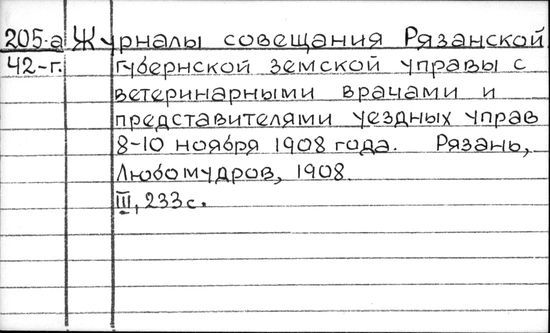 205-а Журналы совещания Рязанской
42-г. губернской земской управы с
ветеринарными врачами и
представителями уездных управ
8-10 ноября 1908 года. Рязань,
Любомудров, 1908.
III, 233 с.